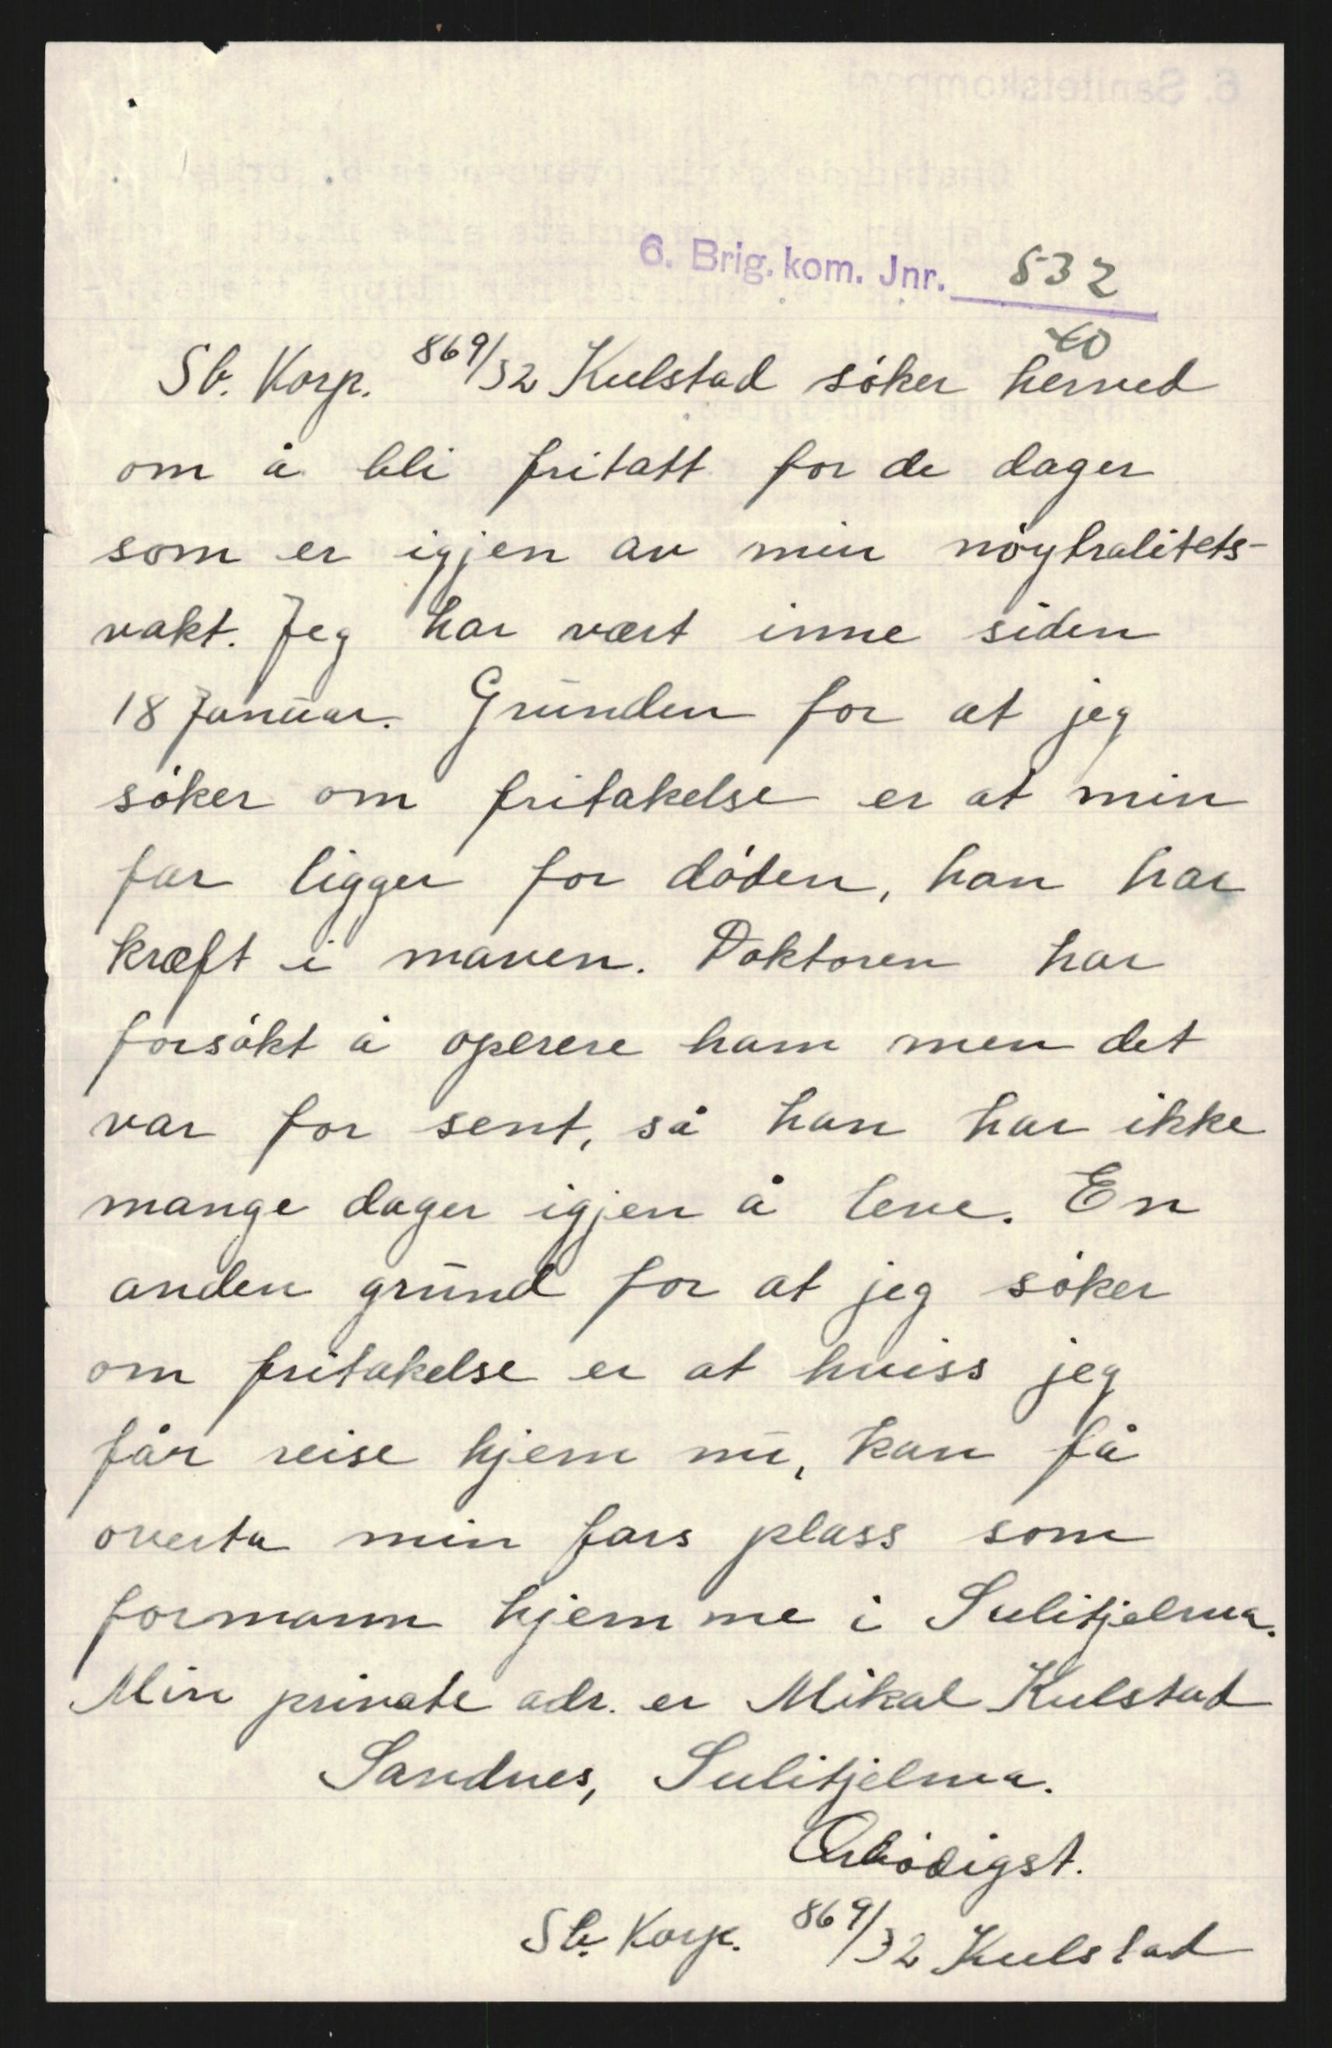 6. Brig. kom. Jnr. 532
40
Sb. Korp. 869/32 Kulstad söker herved
om å bli fritatt for de dager
som er igjen av min nöytralitets-
vakt. Jeg har vært inne siden
18 Januar. Grunden for at jeg
söker om fritakelse er at min
far ligger for döden, han har
kræft i maven. Doktoren har
forsökt å operere ham men det
var for sent, så han har ikke
mange dager igjen å leve. En
anden grund for at jeg söker
om fritakelse er at hviss jeg
får reise hjem nu, kan få
overta min fars plass som
formann hjemme i Sulitjelma.
Min private adr. er Mikal Kulstad
Sandnes, Sulitjelma.
Ærbödigst.
Sb. Korp. 869/32 Kulstad